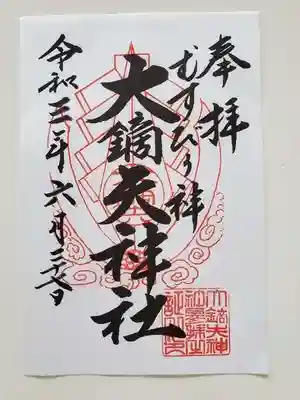 奉拝
むすびの神
大鏑矢神社
令和三年六月二六日